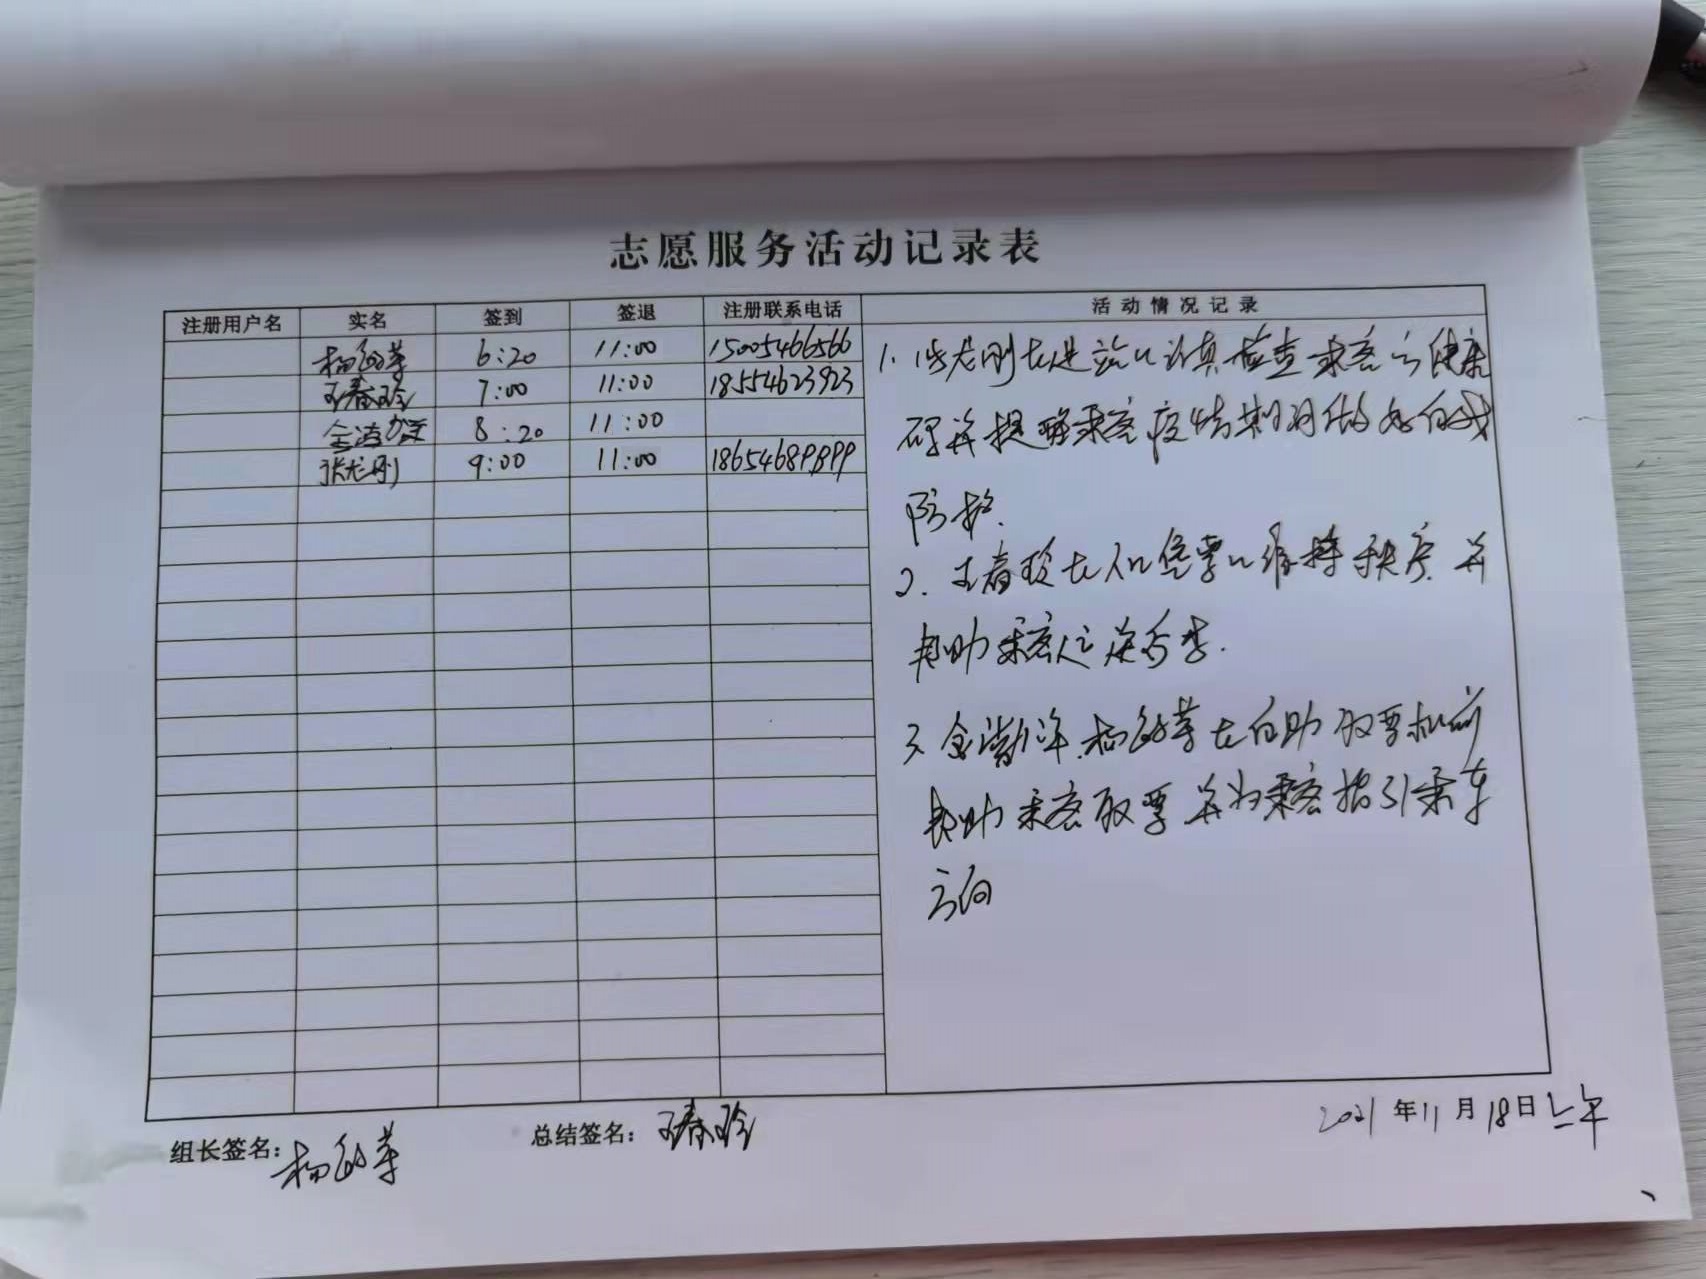 志愿服务活动记录表
注册用户名 实名 签到 签退 注册联系电话 活动情况记录
6:20 11:00 15005466566
王春玲 7:00 11:00 18554623923
8:20 11:00
张龙刚 9:00 11:00 18654689899
1. 张龙刚在进站口认真检查乘客的健康
码并提醒乘客疫情期间做好自我
防护.
2. 王春玲在人工售票口维持秩序并
帮助乘客
3. 在自助取票机前
帮助乘客取票并为乘客指引乘车
方向
组长签名: 总结签名: 王春玲 2021年11月18日上午